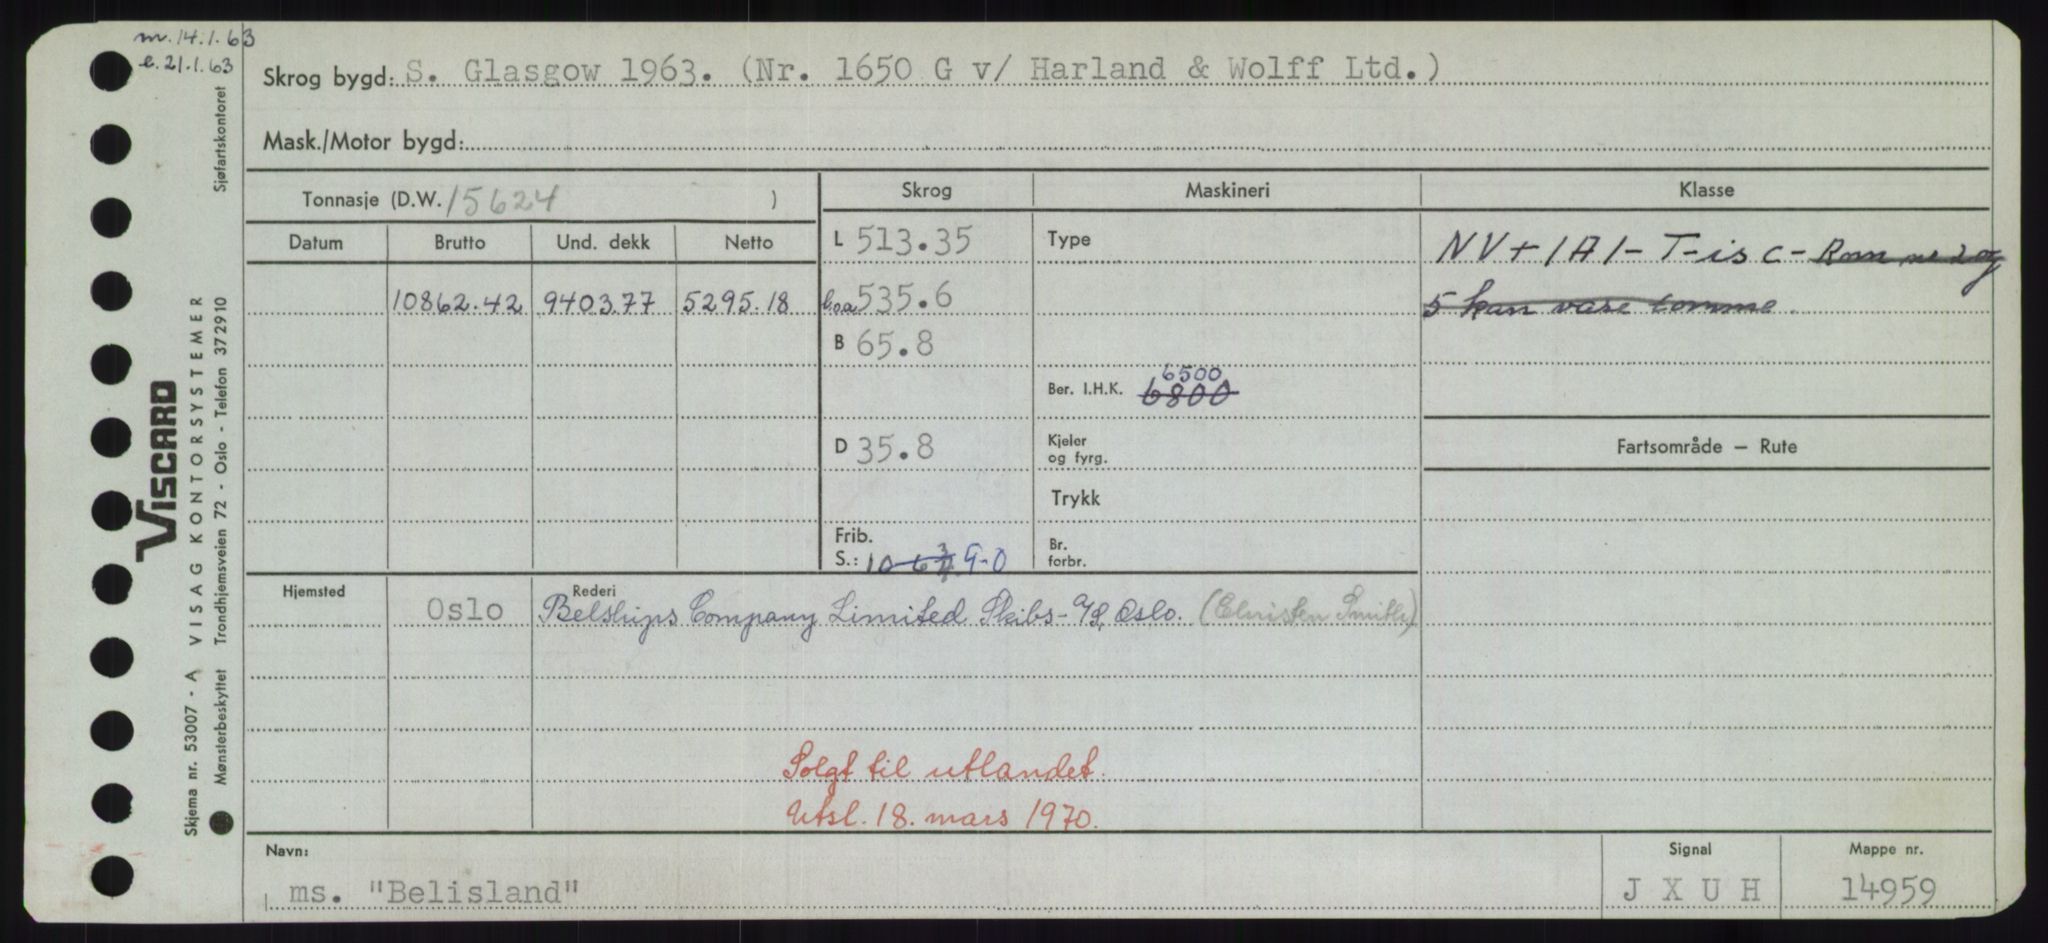 m. 14.1.63
e. 21.1.63
Skrog bygd: S. Glasgow 1963. (Nr. 1650 G v/ Harland & Wolff Ltd.)
Mask./Motor bygd:
Tonnasje (D.W. 15624 )
Skrog
Maskineri
Klasse
Datum
Brutto
Und. dekk
Netto
L 513.35
Type
NV+1A1-T-is C- Rom nr 2 og
10862.42 9403.77 5295.18
l.o.a 535.6
5 kan være tomme.
B 65.8
6500
Ber. I.H.K. 6800
D 35.8
Kjeler
og fyrg.
Fartsområde – Rute
Trykk
Frib.
S.: 9-0
Br.
forbr.
Hjemsted
Oslo
Rederi
Belships Company Limited Skibs-A/S, Oslo. (Elnisten Smith)
Solgt til utlandet.
Utsl. 18. mars 1970.
Navn:
ms. "Belisland"
Signal
J X U H
Mappe nr.
14959
VISCARD
Skjema nr. 53007 - A VISAG KONTORSYSTEMER
Mønsterbeskyttet Trondhjemsveien 72 - Oslo - Telefon 372910 Sjøfartskontoret